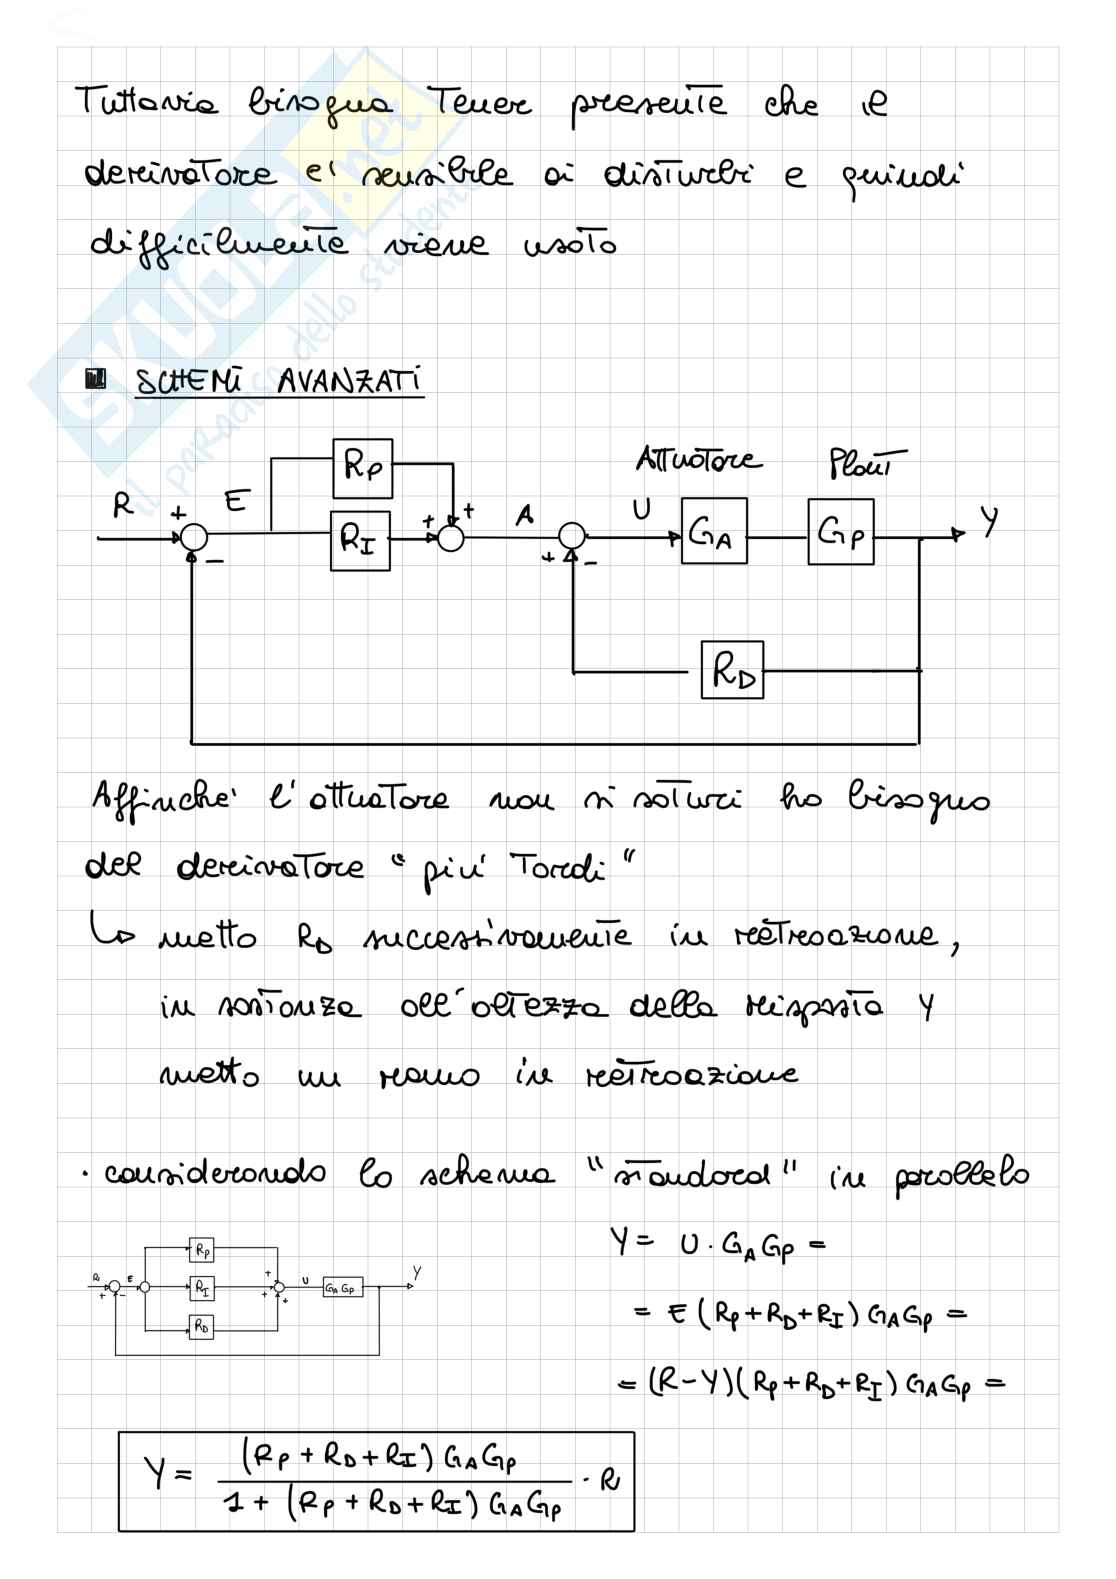 Tuttavia bisogna tener presente che il
derivatore e' sensibile ai disturbi e quindi
difficilmente viene usato
SKUOLA.net
il paradiso dello studente
SCHEMI AVANZATI
Attuatore Plant
R + E RP + + A U GA GP Y
- RI + + -
RD
Affinche' l'attuatore non si saturi ho bisogno
del derivatore "piu' tardi"
↳ metto RD successivamente in retroazione,
in sostanza all'altezza della risposta Y
metto un ramo in retroazione
· considerando lo schema "standard" in parallelo
R + - E RP RI RD + + + U GA GP Y
Y = U · GA GP =
= E (RP + RD + RI) GA GP =
= (R - Y)(RP + RD + RI) GA GP =
Y = (RP + RD + RI) GA GP / 1 + (RP + RD + RI) GA GP · R